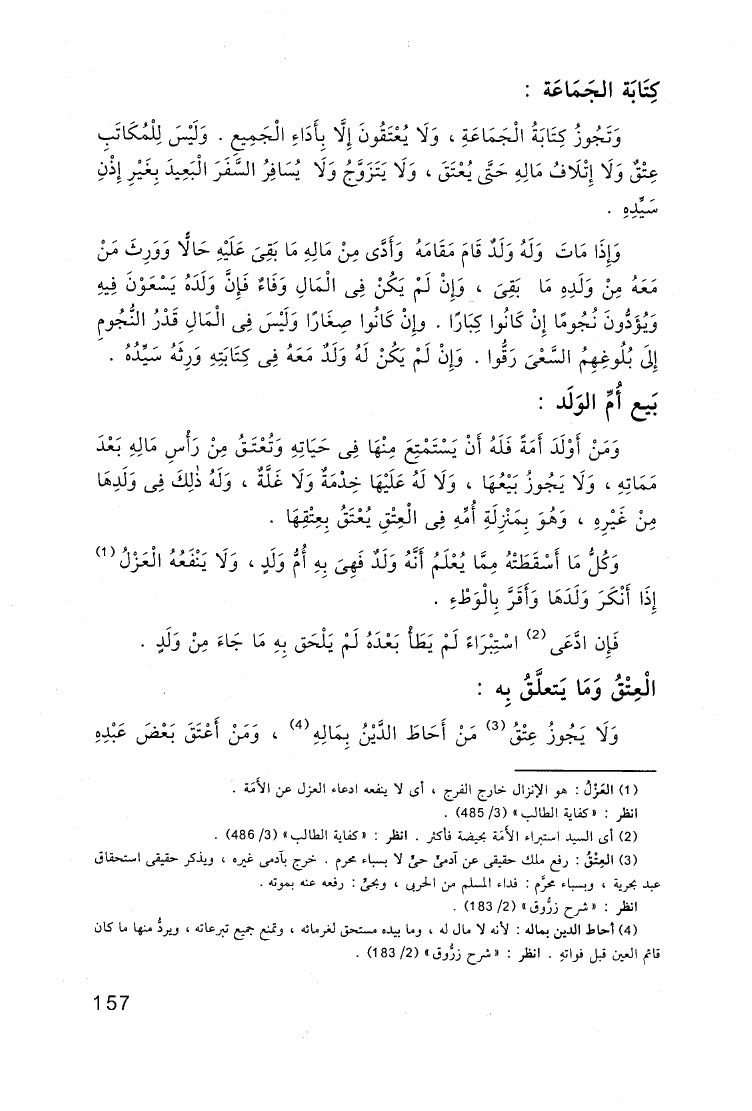 كِتَابَة الجَمَاعَة :
وَتَجُوزُ كِتَابَةُ الْجَمَاعَةِ ، وَلَا يُعْتَقُونَ إِلَّا بِأَدَاءِ الْجَمِيعِ . وَلَيْسَ لِلْمُكَاتَبِ
عِتْقٌ وَلَا إِتْلَافُ مَالِهِ حَتَّى يُعْتَقَ ، وَلَا يَتَزَوَّجُ وَلَا يُسَافِرُ السَّفَرَ الْبَعِيدَ بِغَيْرِ إِذْنِ
سَيِّدِهِ .
وَإِذَا مَاتَ وَلَهُ وَلَدٌ قَامَ مَقَامَهُ وَأَدَّى مِنْ مَالِهِ مَا بَقِىَ عَلَيْهِ حَالًّا وَوَرِثَ مَنْ
مَعَهُ مِنْ وَلَدِهِ مَا بَقِىَ ، وَإِنْ لَمْ يَكُنْ فِى الْمَالِ وَفَاءٌ فَإِنَّ وَلَدَهُ يَسْعَوْنَ فِيهِ
وَيُؤَدُّونَ نُجُومًا إِنْ كَانُوا كِبَارًا . وإِنْ كَانُوا صِغَارًا وَلَيْسَ فِى الْمَالِ قَدْرُ النُّجُومِ
إِلَى بُلُوغِهِمُ السَّعْىَ رَقُّوا . وَإِنْ لَمْ يَكُنْ لَهُ وَلَدٌ مَعَهُ فِى كِتَابَتِهِ وَرِثَهُ سَيِّدُهُ .
بَيع أُمِّ الوَلَد :
وَمَنْ أَوْلَدَ أَمَةً فَلَهُ أَنْ يَسْتَمْتِعَ مِنْهَا فِى حَيَاتِهِ وَتُعْتَقُ مِنْ رَأْسِ مَالِهِ بَعْدَ
مَمَاتِهِ ، وَلَا يَجُوزُ بَيْعُهَا ، وَلَا لَهُ عَلَيْهَا خِدْمَةٌ وَلَا غَلَّةٌ ، وَلَهُ ذٰلِكَ فِى وَلَدِهَا
مِنْ غَيْرِهِ ، وَهُوَ بِمَنْزِلَةِ أُمِّهِ فِى الْعِتْقِ يُعْتَقُ بِعِتْقِهَا .
وَكُلُّ مَا أَسْقَطَتْهُ مِمَّا يُعْلَمُ أَنَّهُ وَلَدٌ فَهِىَ بِهِ أُم وَلَدٍ ، وَلَا يَنْفَعُهُ الْعَزْلُ (1)
إِذَا أَنْكَرَ وَلَدَهَا وَأَقَرَّ بِالْوَطْءِ .
فَإِن ادَّعَى (2) اسْتِبْرَاءً لَمْ يَطَأْ بَعْدَهُ لَمْ يَلْحَق بِهِ مَا جَاءَ مِنْ وَلَدٍ .
الْعِتْقُ وَمَا يَتَعلَّقُ بِه :
وَلَا يَجُوزُ عِتْقُ (3) مَنْ أَحَاطَ الدَّيْنُ بِمَالِهِ (4) ، وَمَنْ أَعْتَقَ بَعْضَ عَبْدِهِ
(1) العَزْلُ : هو الإنزال خارج الفرج ، أى لا ينفعه ادعاء العزل عن الأمَة .
انظر : «كفاية الطالب» (3/ 485) .
(2) أى السيد استبراء الأمَة بحيضة فأكثر . انظر : «كفاية الطالب» (3/ 486) .
(3) العِتْقُ : رفع ملك حقيقى عن آدمىٍّ حىٍّ لا بسباء محرم . خرج بآدمى غيره ، وبذكر حقيقى استحقاق
عبد بحرية ، وبسباء محرَّم : فداء المسلم من الحربى ، وبحىٍّ : رفعه عنه بموته .
انظر : «شرح زرُّوق» (2/ 183) .
(4) أحاط الدين بماله : لأنه لا مال له ، وما بيده مستحق لغرمائه ، وتمنع جميع تبرعاته ، ويردُّ منها ما كان
قائم العين قبل فواته . انظر : «شرح زرُّوق» (2/ 183) .
157